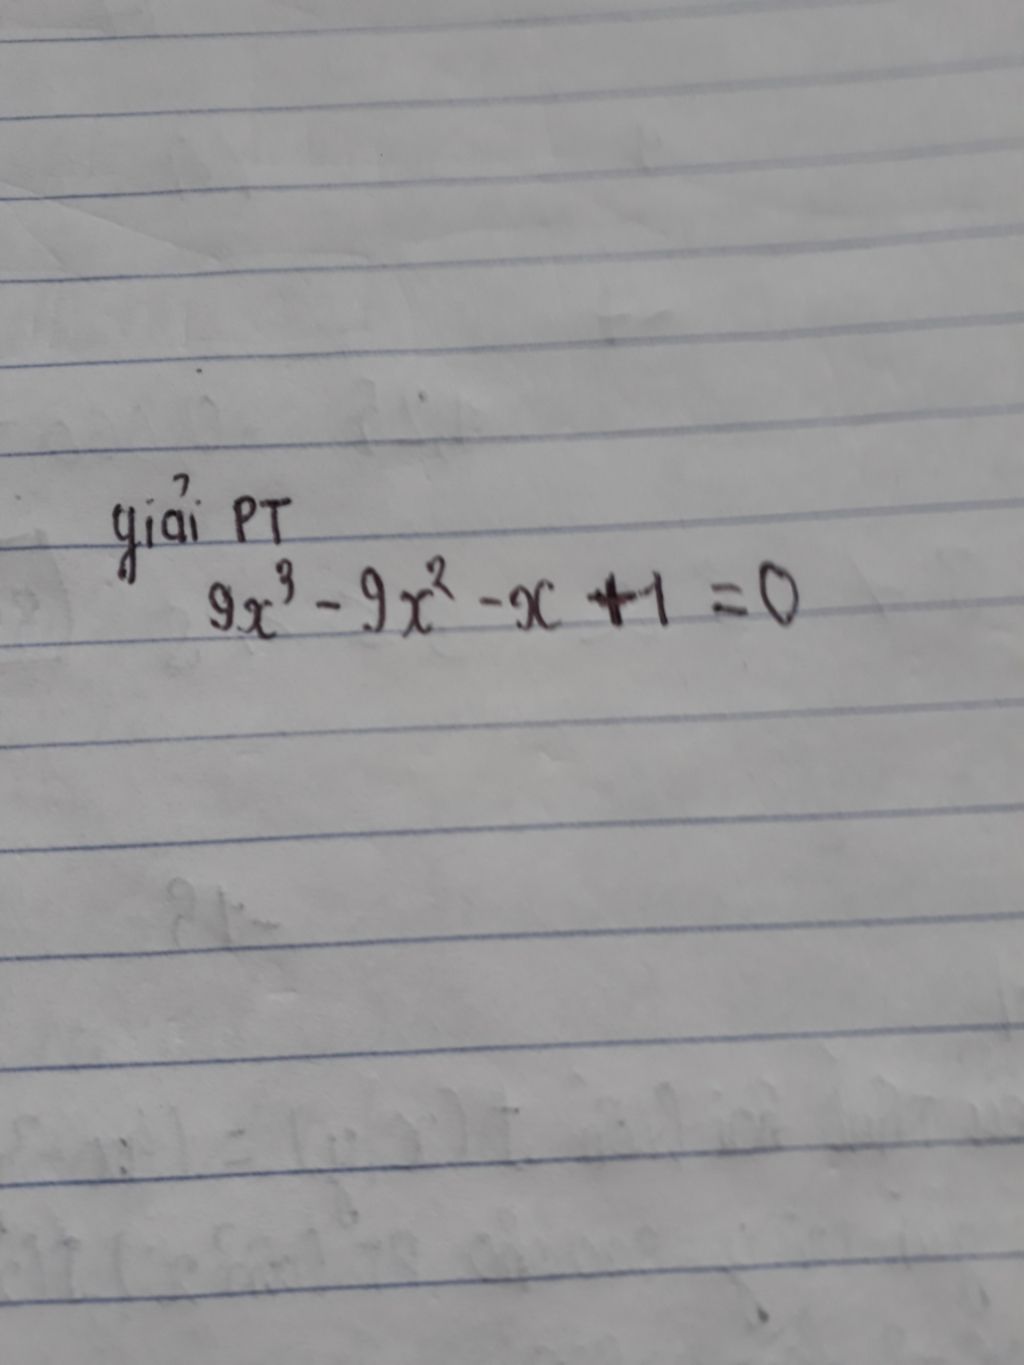 giải PT
9x³ - 9x² - x + 1 = 0